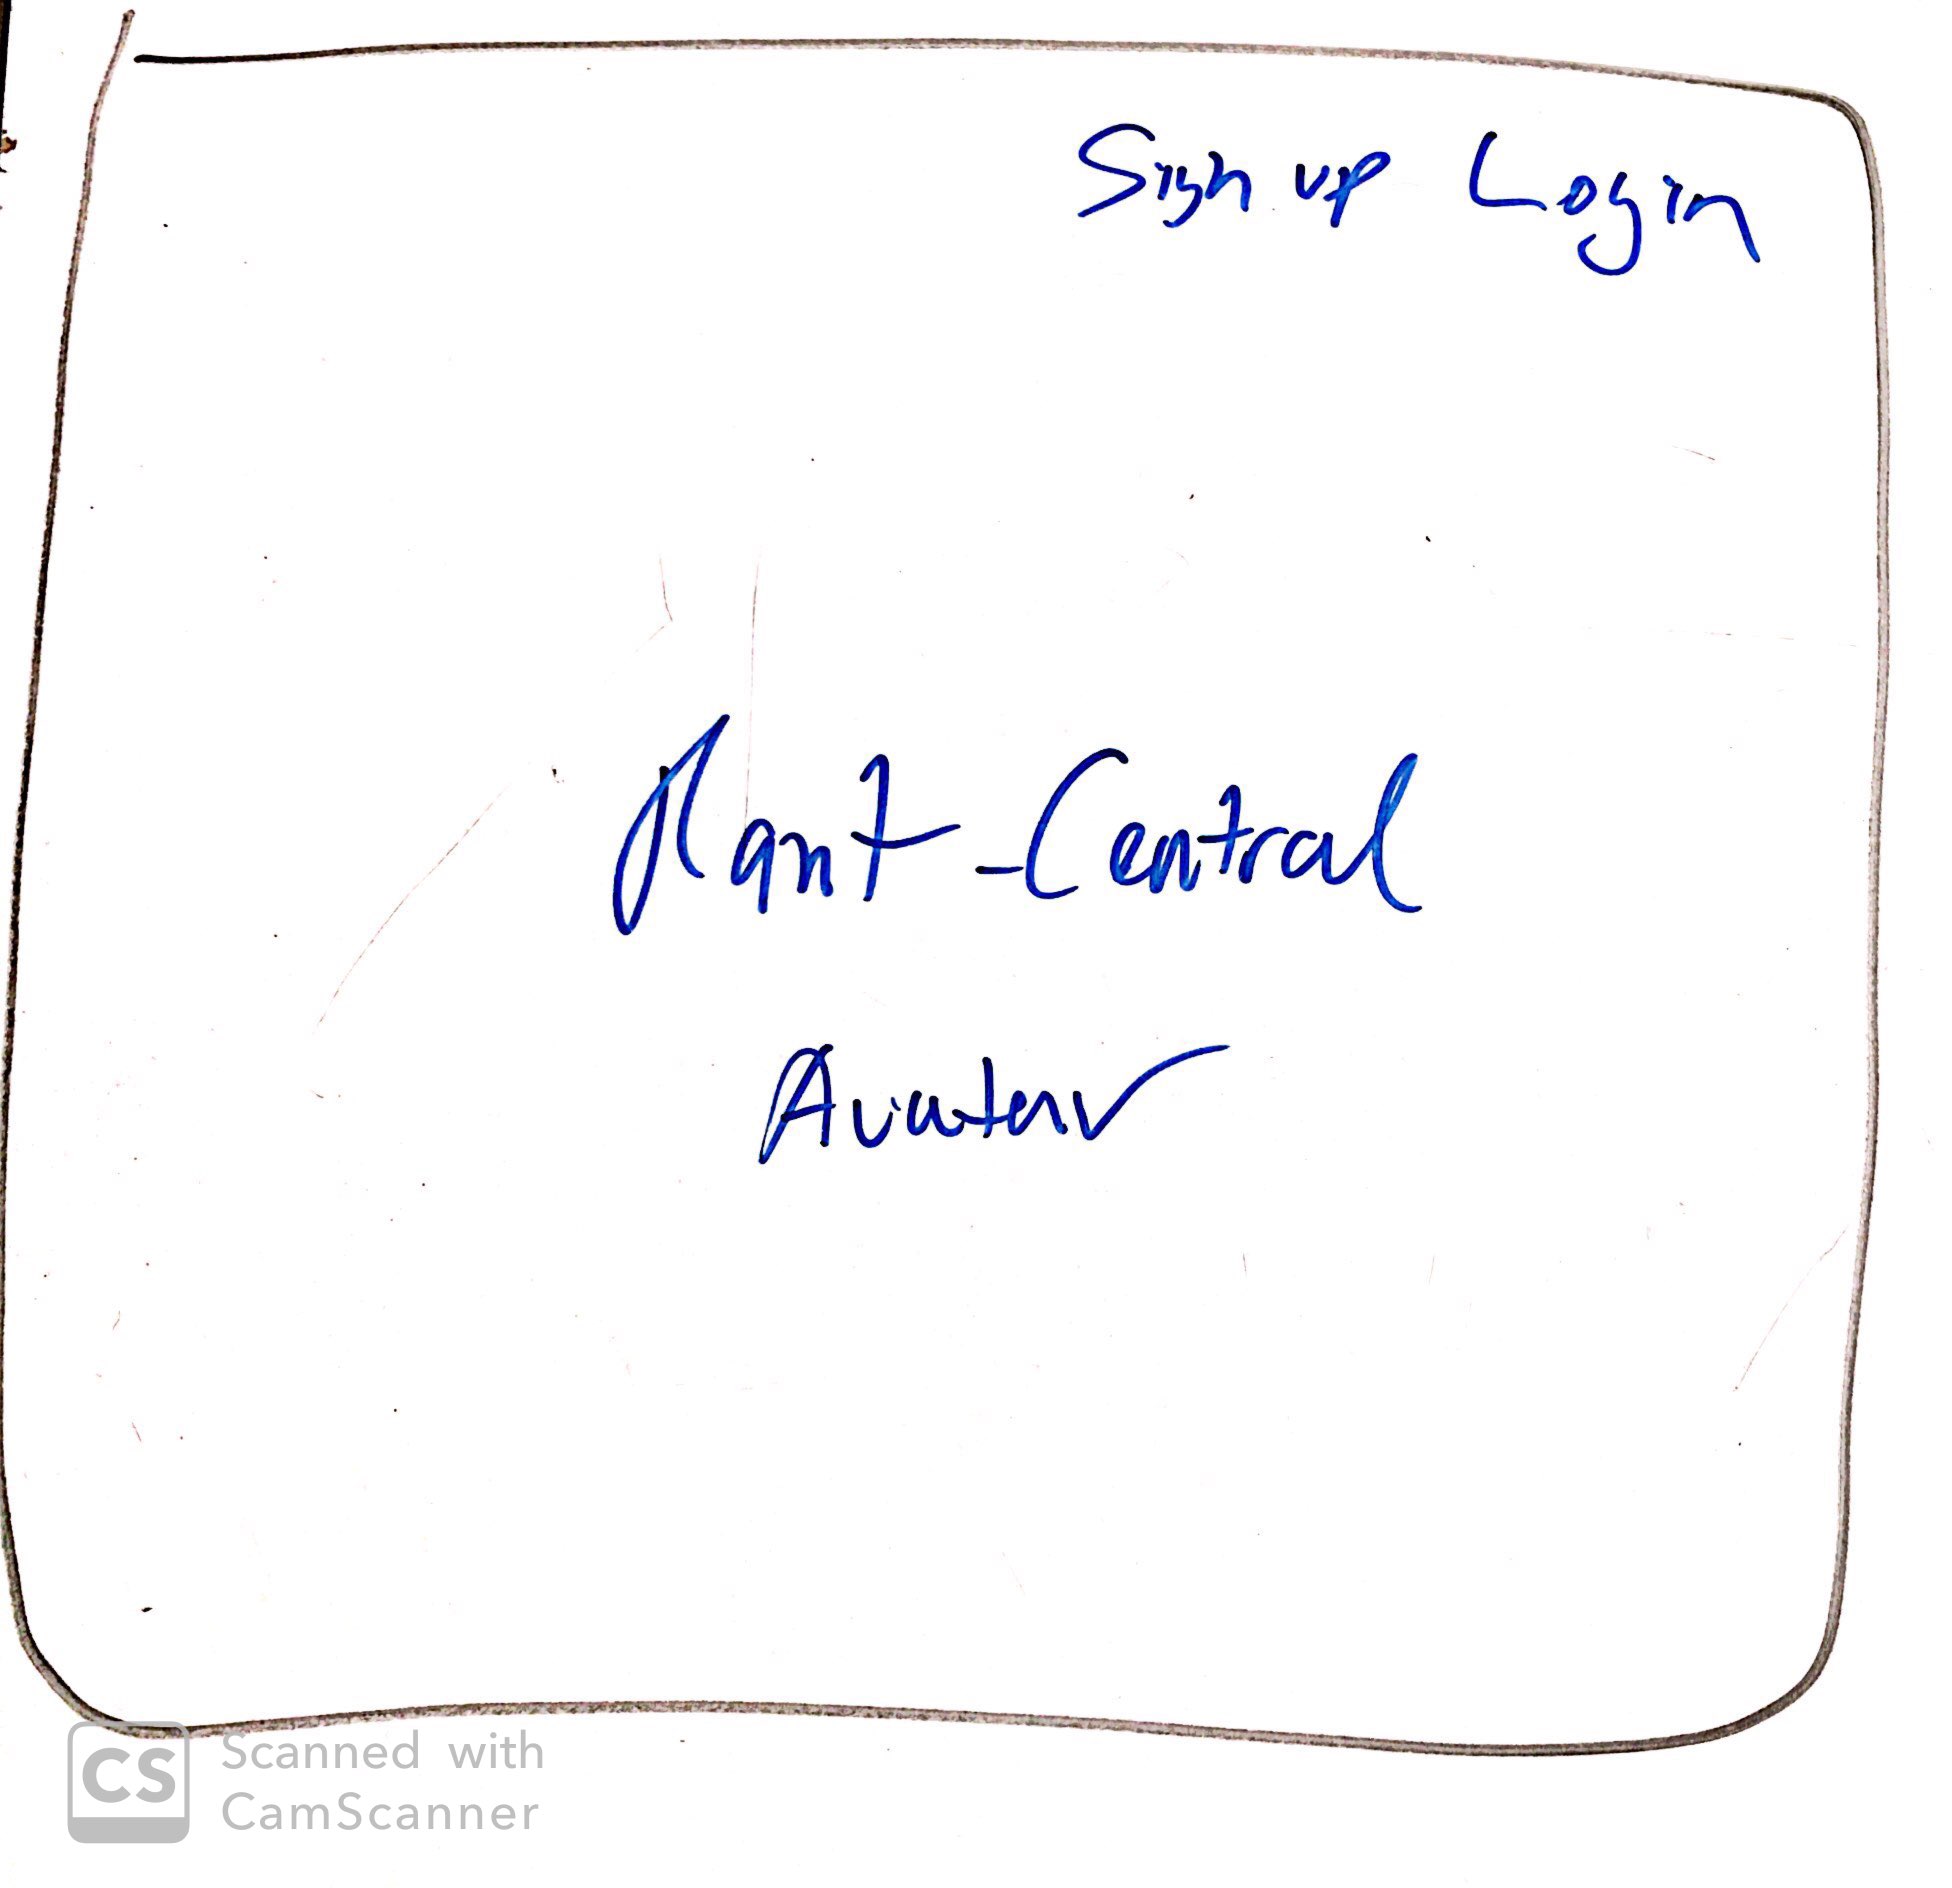 Sign up Login
Plant-Central
Scanned with
CamScanner